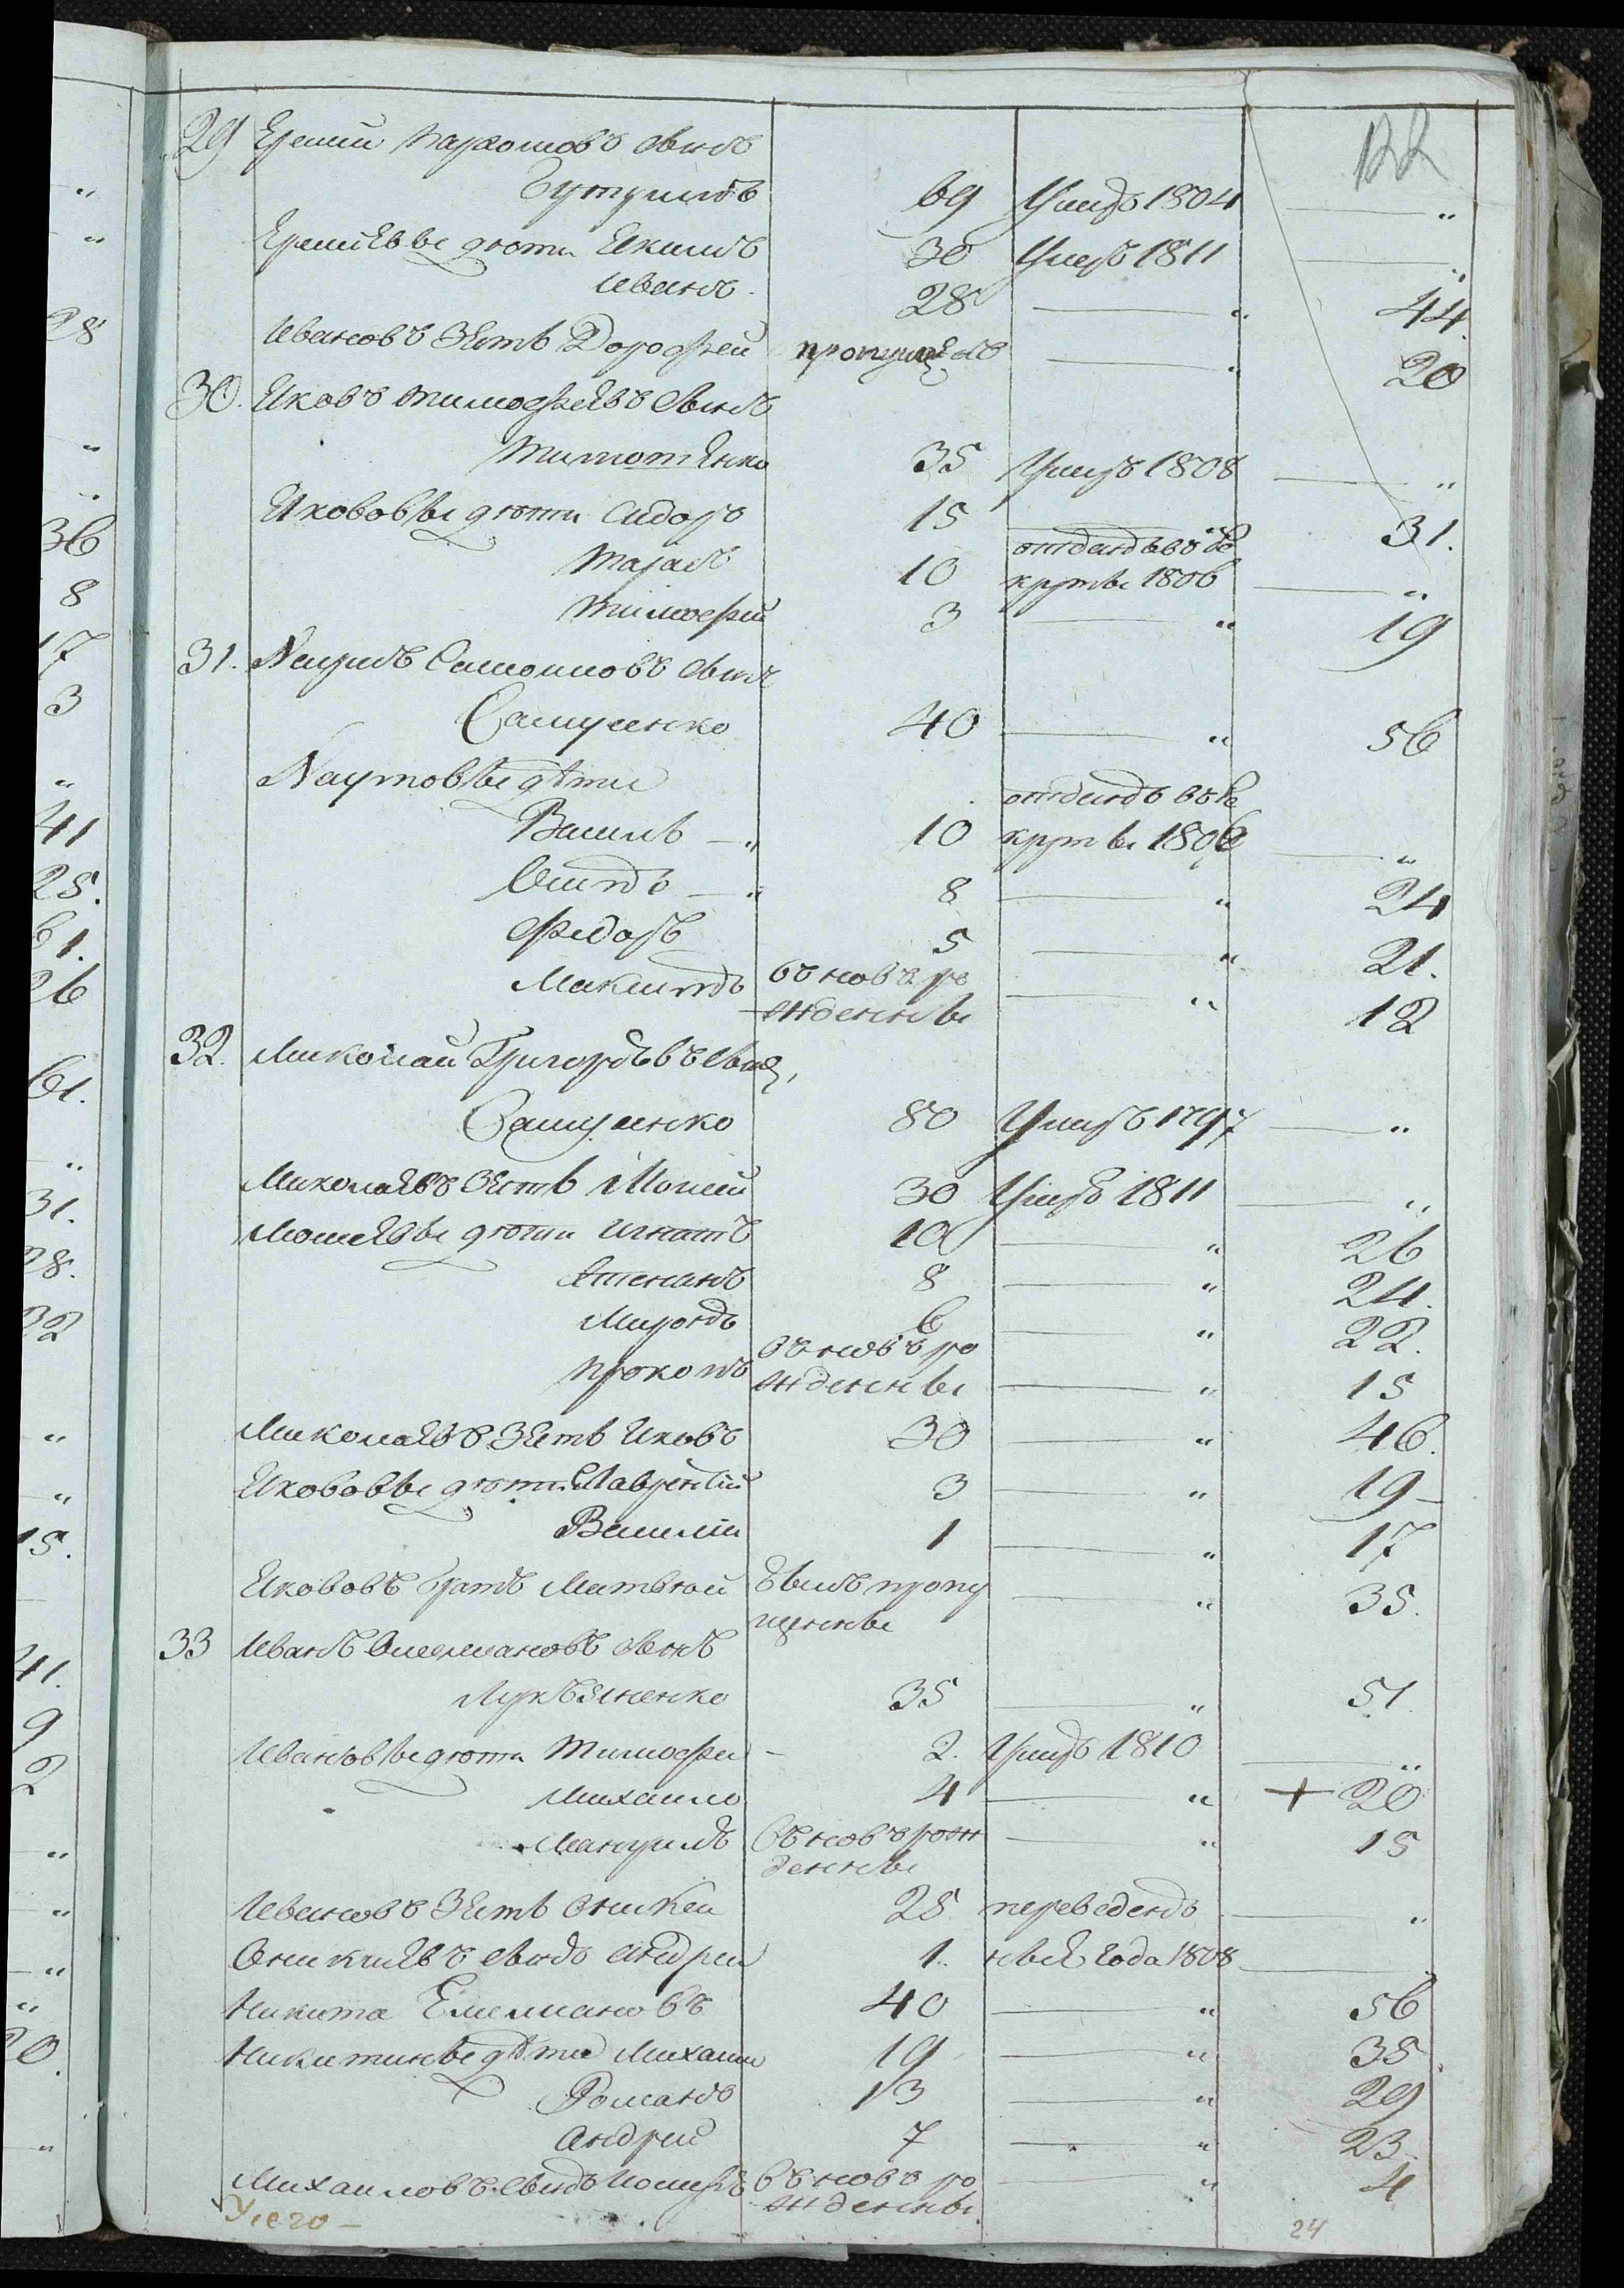 122
29 Еремий Пархомовъ сынъ
Бутримъ 69 Умеръ 1804 — "
Еремѣевы дѣти Якимъ 30 Умеръ 1811 — "
Иванъ 28 — " 44
Ивановъ зять Дорофей пропущенъ — " 20
30. Яковъ Тимофѣевъ сынъ
Тимотѣнко 35 Умеръ 1808 — "
Яκововы дѣти Сидоръ 15 — " 31.
Тарасъ 10 отданъ въ ре
круты 1806 — "
Тимофей 3 — " 19
31. Наумъ Самойловъ сынъ
Самусенко 40 — " 56
Наумовы дѣти
Василь — " 10 отданъ въ ре
круты 1806 — "
Осипъ — " 8 — " 24
Федоръ 5 — " 21.
Максимъ въ новъ ро
жденны — " 12
32. Миколай Григорьевъ сынъ
Самусенко 80 Умеръ 1797 — "
Миколаевъ зять Мосей 30 Умеръ 1811 — "
Мосеевы дѣти Игнатъ 10 — " 26
Степанъ 8 — " 24.
Миронъ 6 — " 22.
Прокопъ въ новъ ро
жденны — " 15
Миколаевъ зять Яковъ 30 — " 46.
Яκововы дѣти Лаврентій 3 — " 19
Василій 1 — " 17
Яκововъ братъ Матвѣй былъ пропу
щенны — " 35.
33 Иванъ Омельяновъ сынъ
Лукьяненко 35 — " 51
Ивановы дѣти Тимофей 2. Умеръ 1810 — "
Михайло 4 — " + 20
Мануилъ въ новъ рож
денны — " 15
Ивановъ зять Оникей 25 переведенъ — "
Оникиевъ сынъ Андрей 1. года 1808 —
Никита Емельяновъ 40 — " 56
Никитины дѣти Михаил 19 — " 35.
Романъ 13 — " 29
Андрей 7 — " 23
Михаиловъ сынъ въ новъ ро
жденны — " 4
24